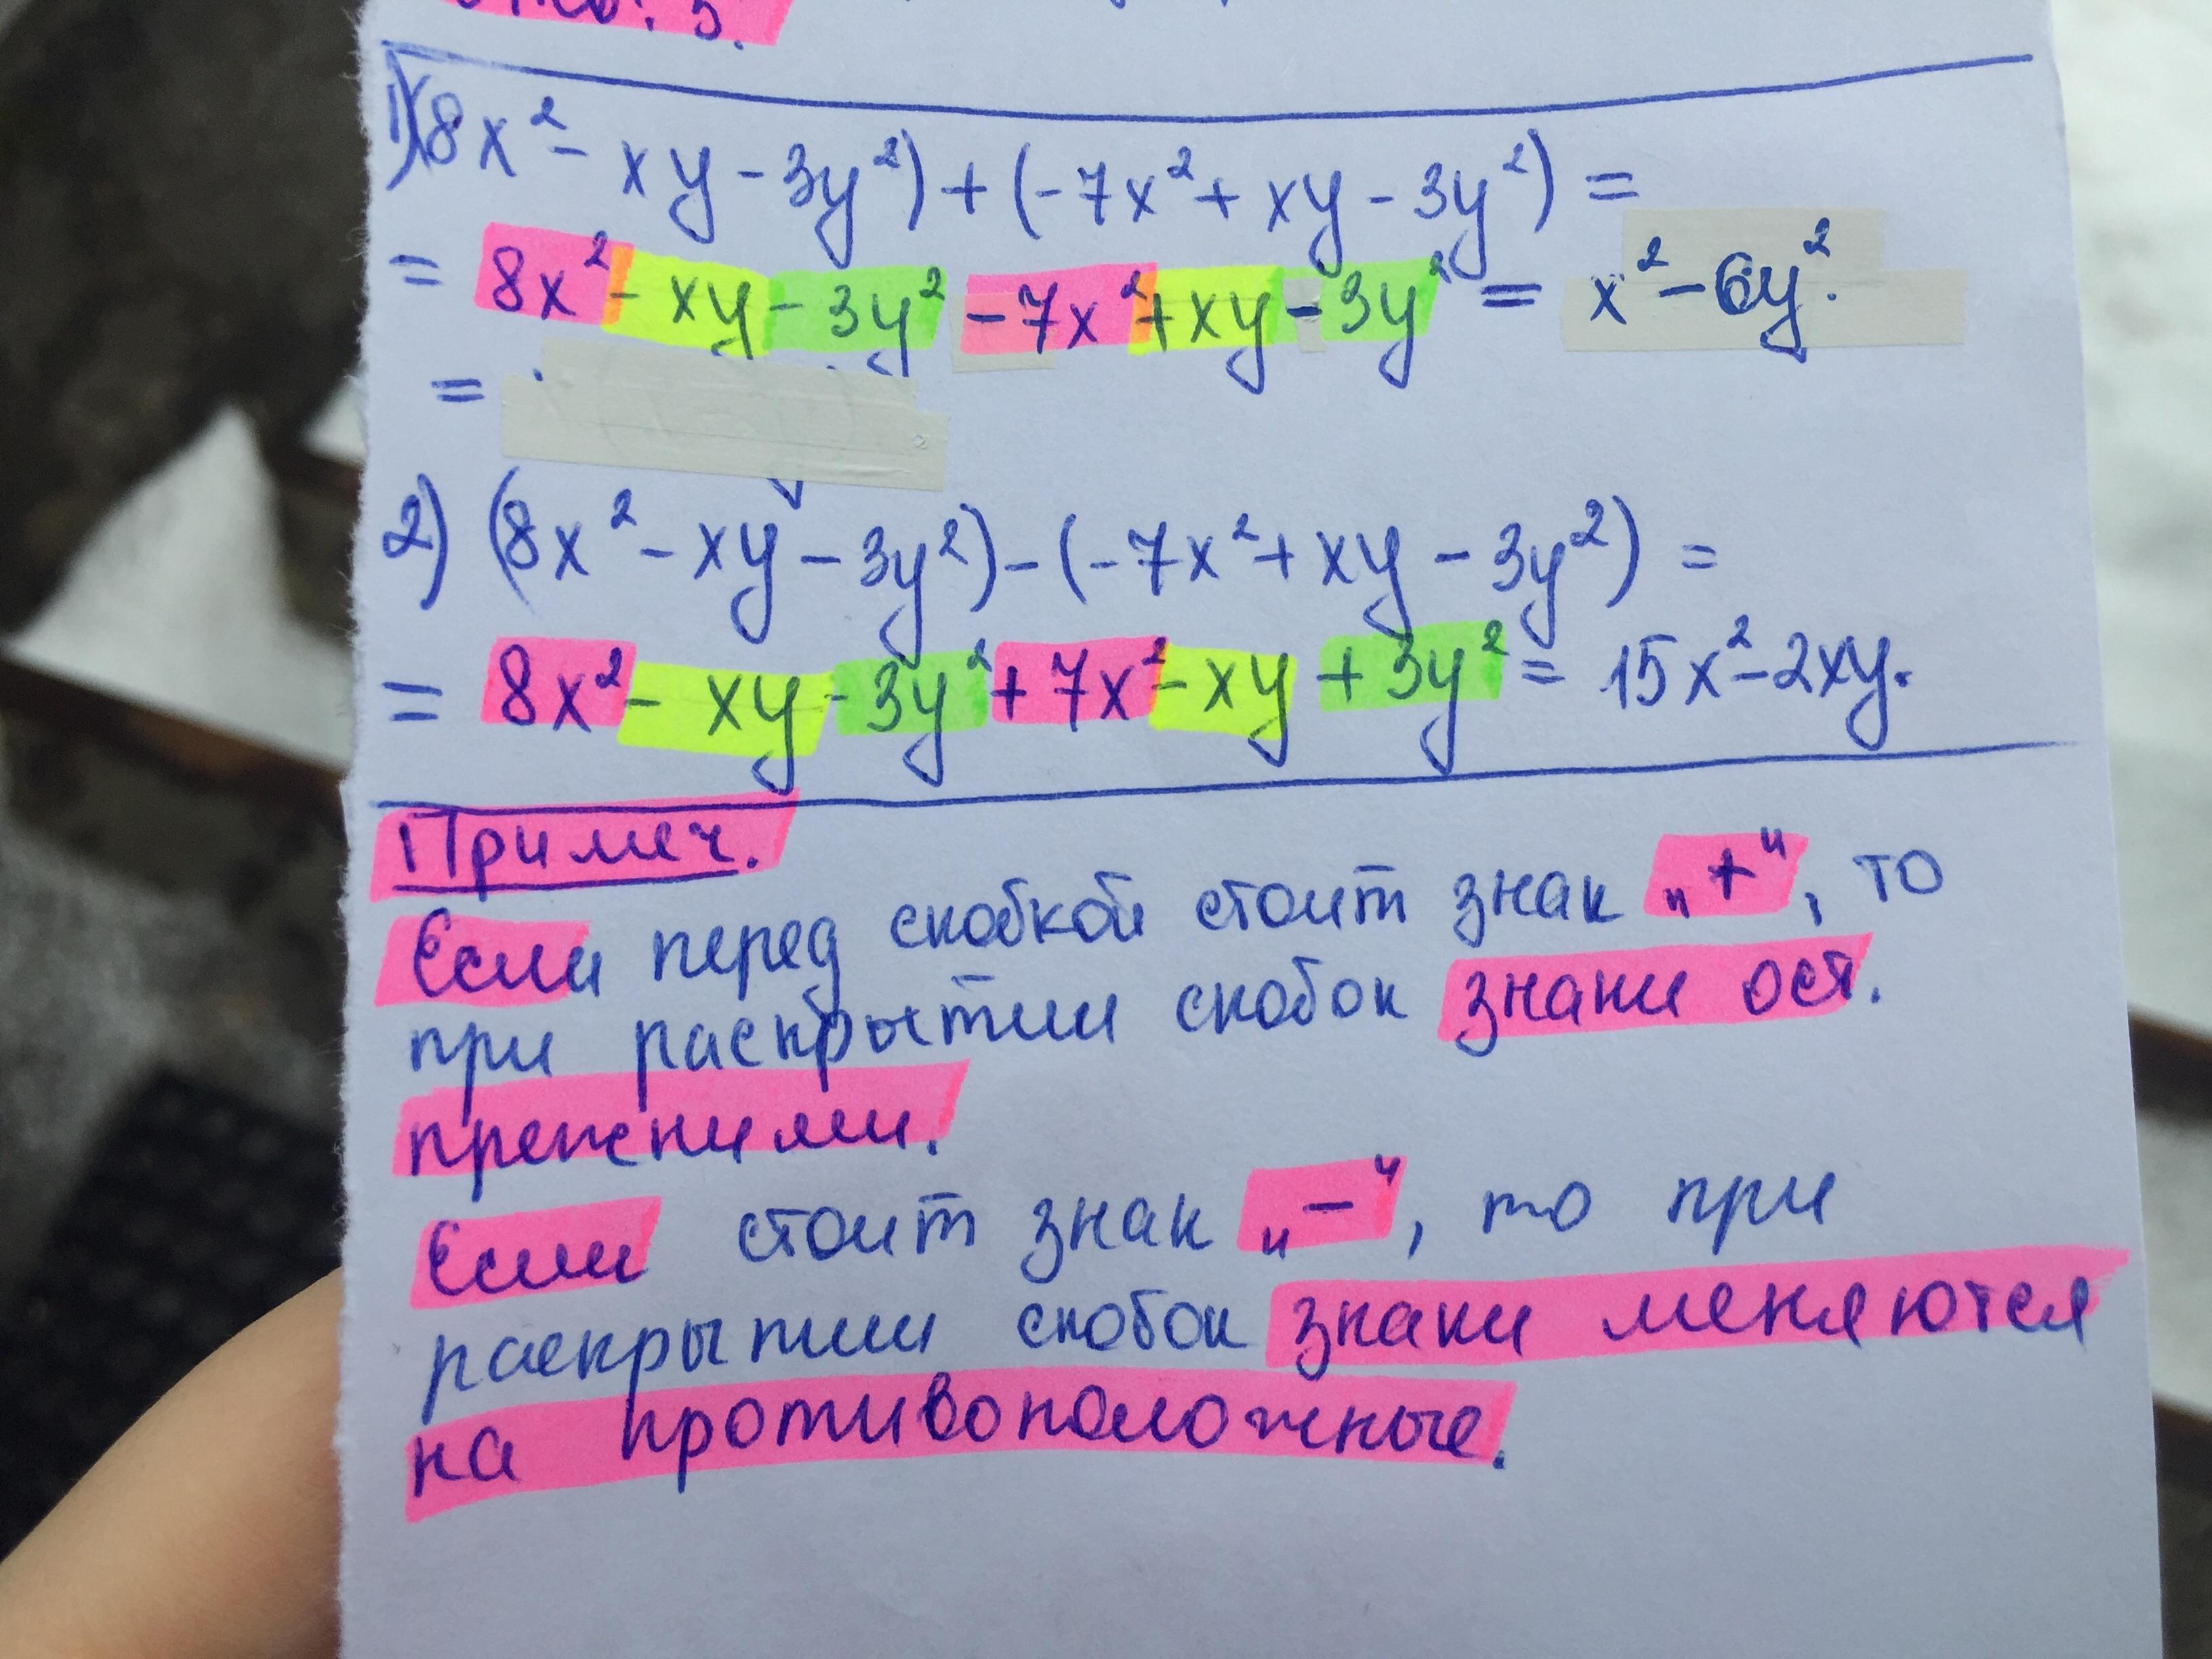 1) (8x² - xy - 3y²) + (-7x² + xy - 3y²) =
= 8x² - xy - 3y² - 7x² + xy - 3y² = x² - 6y².
=
2) (8x² - xy - 3y²) - (-7x² + xy - 3y²) =
= 8x² - xy - 3y² + 7x² - xy + 3y² = 15x² - 2xy.
Примеч.
Если перед скобкой стоит знак „+“, то
при раскрытии скобок знаки ост.
прежними.
Если стоит знак „−“, то при
раскрытии скобок знаки меняются
на противоположные.